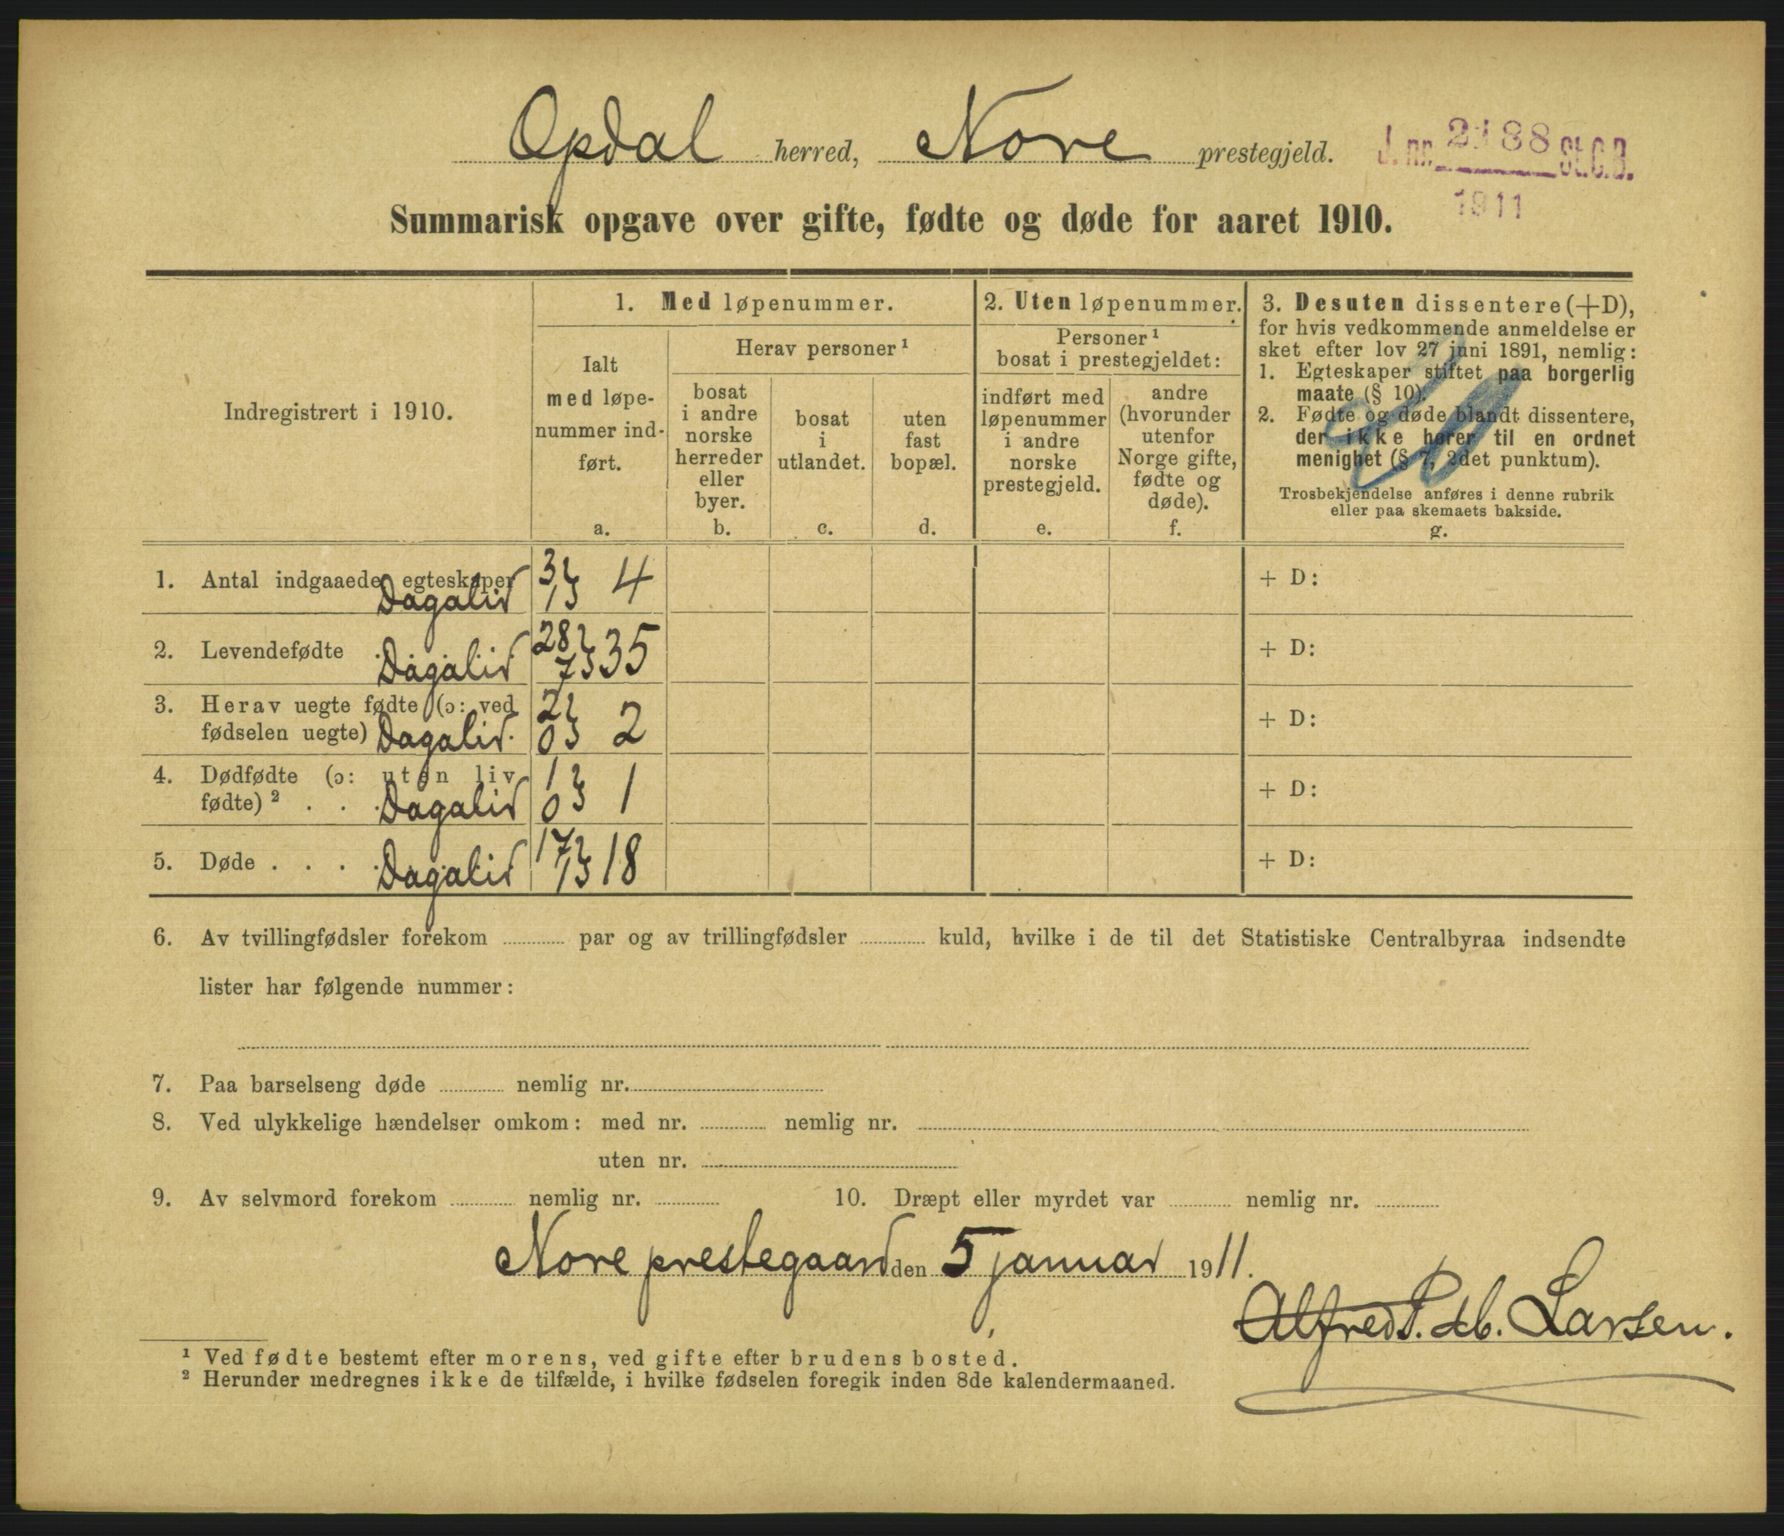 Opdal herred, Nore prestegjeld.
J. nr. 2188 St.C.B.
1911
Summarisk opgave over gifte, fødte og døde for aaret 1910.
Indregistrert i 1910.
1. Med løpenummer.
Ialt
med løpe-
nummer ind-
ført.
a.
Herav personer ¹
bosat
i andre
norske
herreder
eller
byer.
b.
bosat
i
utlandet.
c.
uten
fast
bopæl.
d.
2. Uten løpenummer.
Personer ¹
bosat i prestegjeldet:
indført med
løpenummer
i andre
norske
prestegjeld.
e.
andre
(hvorunder
utenfor
Norge gifte,
fødte og
døde).
f.
3. Desuten dissentere (+D),
for hvis vedkommende anmeldelse er
sket efter lov 27 juni 1891, nemlig:
1. Egteskaper stiftet paa borgerlig
maate (§ 10).
2. Fødte og døde blandt dissentere,
der ikke hører til en ordnet
menighet (§ 7, 2det punktum).
Trosbekjendelse anføres i denne rubrik
eller paa skemaets bakside.
g.
1. Antal indgaaede egteskaper 3 } 4 + D:
Dagalid 1
2. Levendefødte . . 28 } 35 + D:
Dagalid 7
3. Herav uegte fødte (ɔ: ved 2 } 2 + D:
fødselen uegte) Dagalid. 0
4. Dødfødte (ɔ: uten liv 1 } 1 + D:
fødte) ² . . . Dagalid 0
5. Døde . . . . 17 } 18 + D:
Dagalid 1
6. Av tvillingfødsler forekom ........ par og av trillingfødsler ........ kuld, hvilke i de til det Statistiske Centralbyraa indsendte
lister har følgende nummer:
7. Paa barselseng døde ........ nemlig nr.
8. Ved ulykkelige hændelser omkom: med nr. ........ nemlig nr.
uten nr.
9. Av selvmord forekom ........ nemlig nr. ........ 10. Dræpt eller myrdet var ........ nemlig nr.
Nore prestegaard den 5 januar 1911.
Larsen.
¹ Ved fødte bestemt efter morens, ved gifte efter brudens bosted.
² Herunder medregnes ikke de tilfælde, i hvilke fødselen foregik inden 8de kalendermaaned.